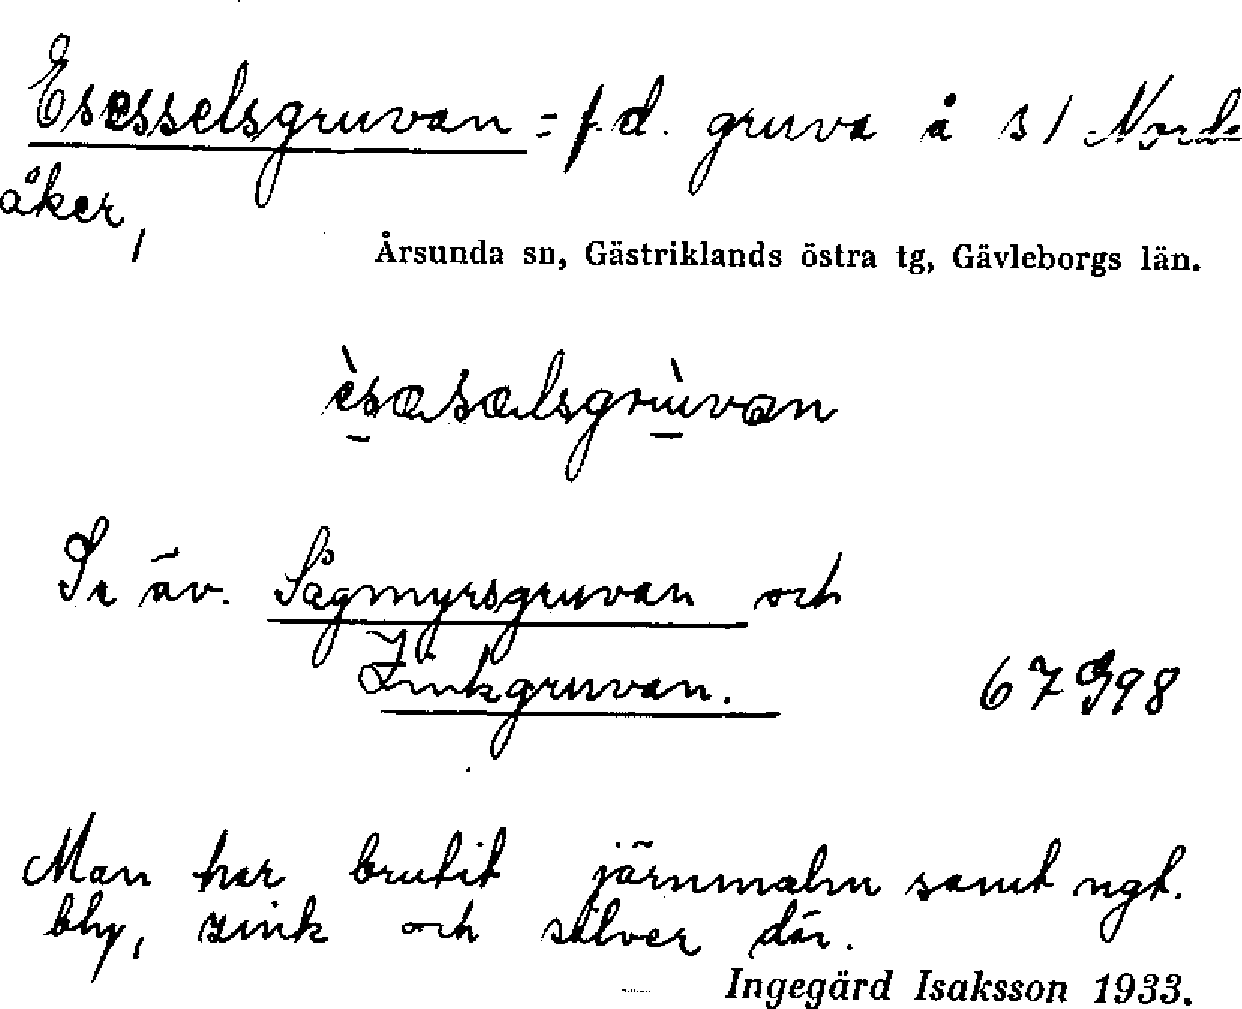 Esesselsgruvan = f.d. gruva å s/ Nord-
åker,
Årsunda sn, Gästriklands östra tg, Gävleborgs län.
è̱sæsælsgrù̱van
Se äv. Sågmyrsgruvan och
Zinkgruvan.
67 998
Man har brutit järnmalm samt ngt.
bly, zink och silver där.
Ingegärd Isaksson 1933.